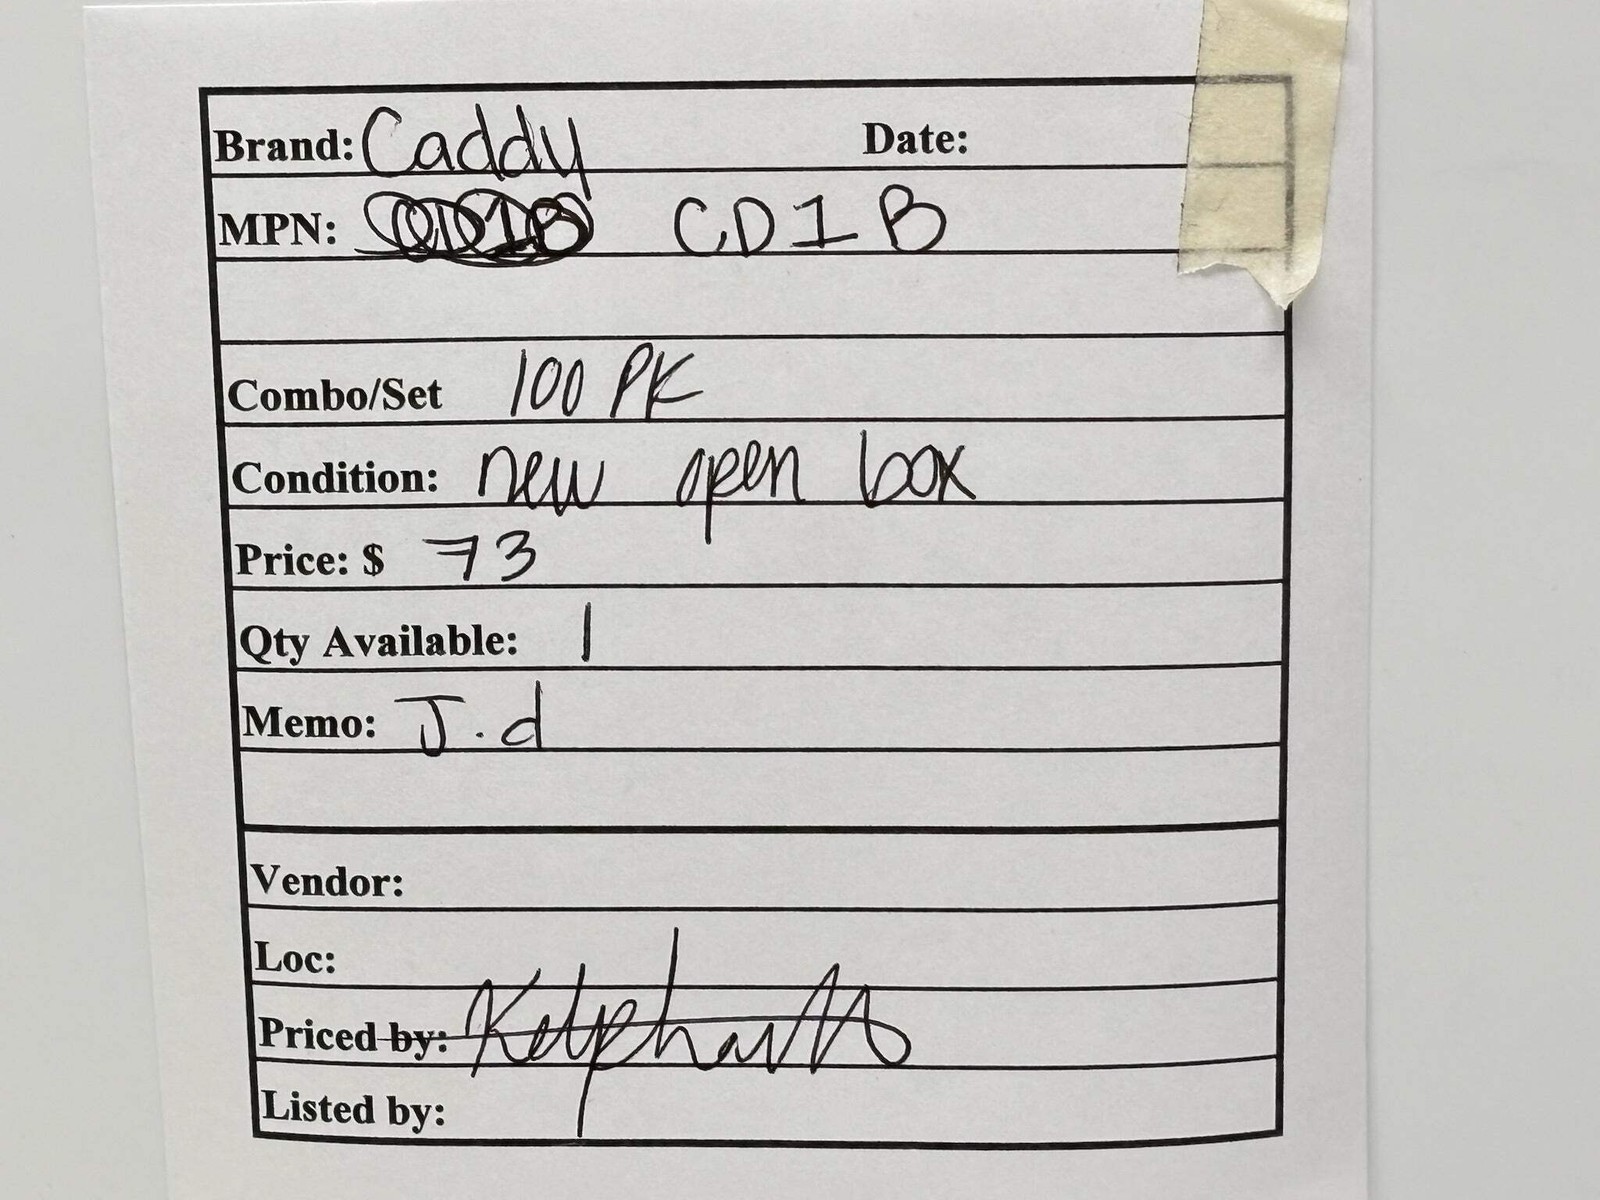 Brand: Caddy Date:
MPN: CD1B
Combo/Set 100 PK
Condition: new open box
Price: $ 73
Qty Available: 1
Memo: J.d
Vendor:
Loc:
Priced by:
Listed by: